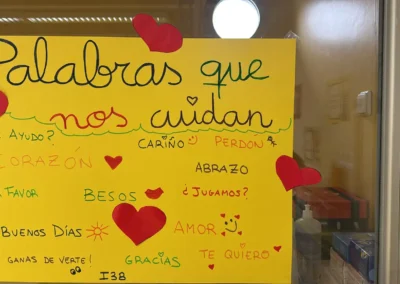 Palabras que
nos cuidan
Ayudo?
CARIÑO
PERDÓN
CORAZÓN
ABRAZO
FAVOR
BESOS
¿JUGAMOS?
BUENOS DÍAS
AMOR
GANAS DE VERTE!
GRACIAS
TE QUIERO
I3B